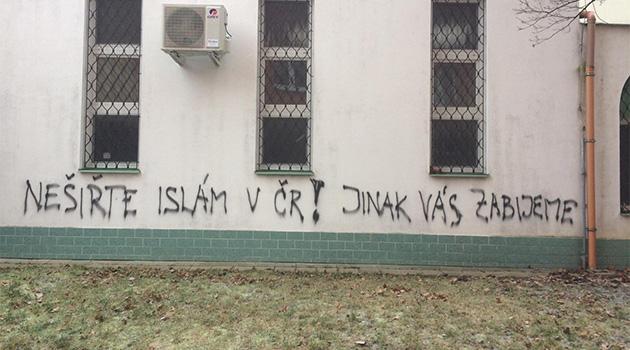 NEŠIŘTE ISLÁM V ČR! JINAK VÁS ZABIJEME